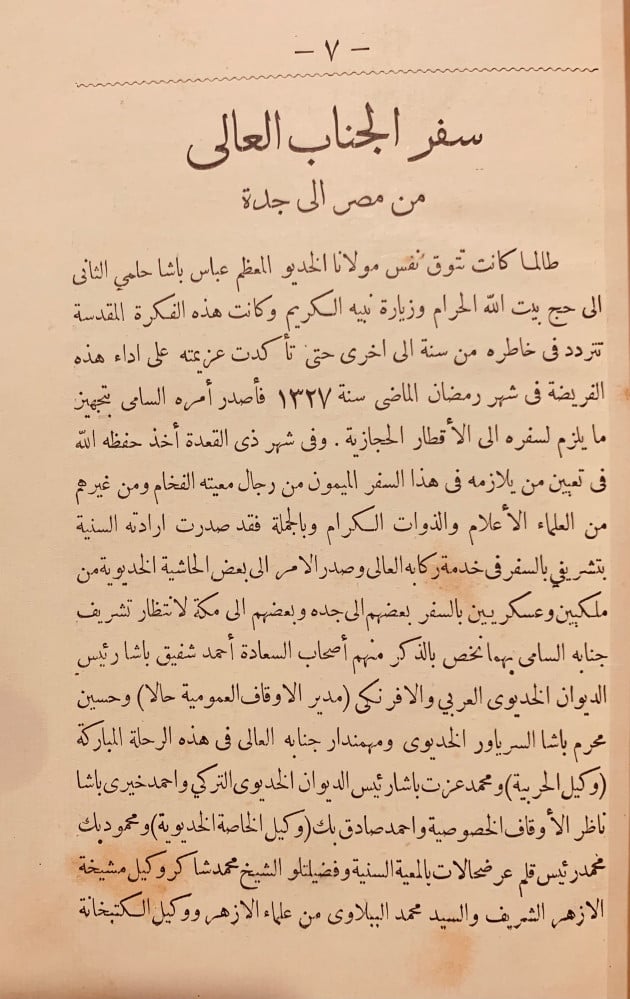 — ٧ —
سفر الجناب العالى
من مصر الى جدة
طالما كانت تتوق نفس مولانا الخديو المعظم عباس باشا حلمي الثانى
الى حج بيت الله الحرام وزيارة نبيه الكريم وكانت هذه الفكرة المقدسة
تتردد فى خاطره من سنة الى اخرى حتى تأكدت عزيمته على اداء هذه
الفريضة فى شهر رمضان الماضى سنة ١٣٢٧ فأصدر أمره السامى بتجهيز
ما يلزم لسفره الى الأقطار الحجازية . وفى شهر ذى القعدة أخذ حفظه الله
فى تعيين من يلازمه فى هذا السفر الميمون من رجال معيته الفخام ومن غيرهم
من العلماء الأعلام والذوات الكرام وبالجملة فقد صدرت ارادته السنية
بتشريفي بالسفر فى خدمة ركابه العالى وصدر الامر الى بعض الحاشية الخديوية من
ملكيين وعسكريين بالسفر بعضهم الى جده وبعضهم الى مكة لانتظار تشريف
جنابه السامى بهما نخص بالذكر منهم أصحاب السعادة أحمد شفيق باشا رئيس
الديوان الخديوى العربي والافرنكى (مدير الاوقاف العمومية حالا) وحسين
محرم باشا السرياور الخديوى ومهمندار جنابه العالى فى هذه الرحلة المباركة
(وكيل الحربية) ومحمد عزت باشا رئيس الديوان الخديوى التركي واحمد خيرى باشا
ناظر الأوقاف الخصوصية واحمد صادق بك (وكيل الخاصة الخديوية) ومحمود بك
محمد رئيس قلم عرضحالات بالمعية السنية وفضيلتلو الشيخ محمد شاكر وكيل مشيخة
الازهر الشريف والسيد محمد الببلاوى من علماء الازهر ووكيل الكتبخانة